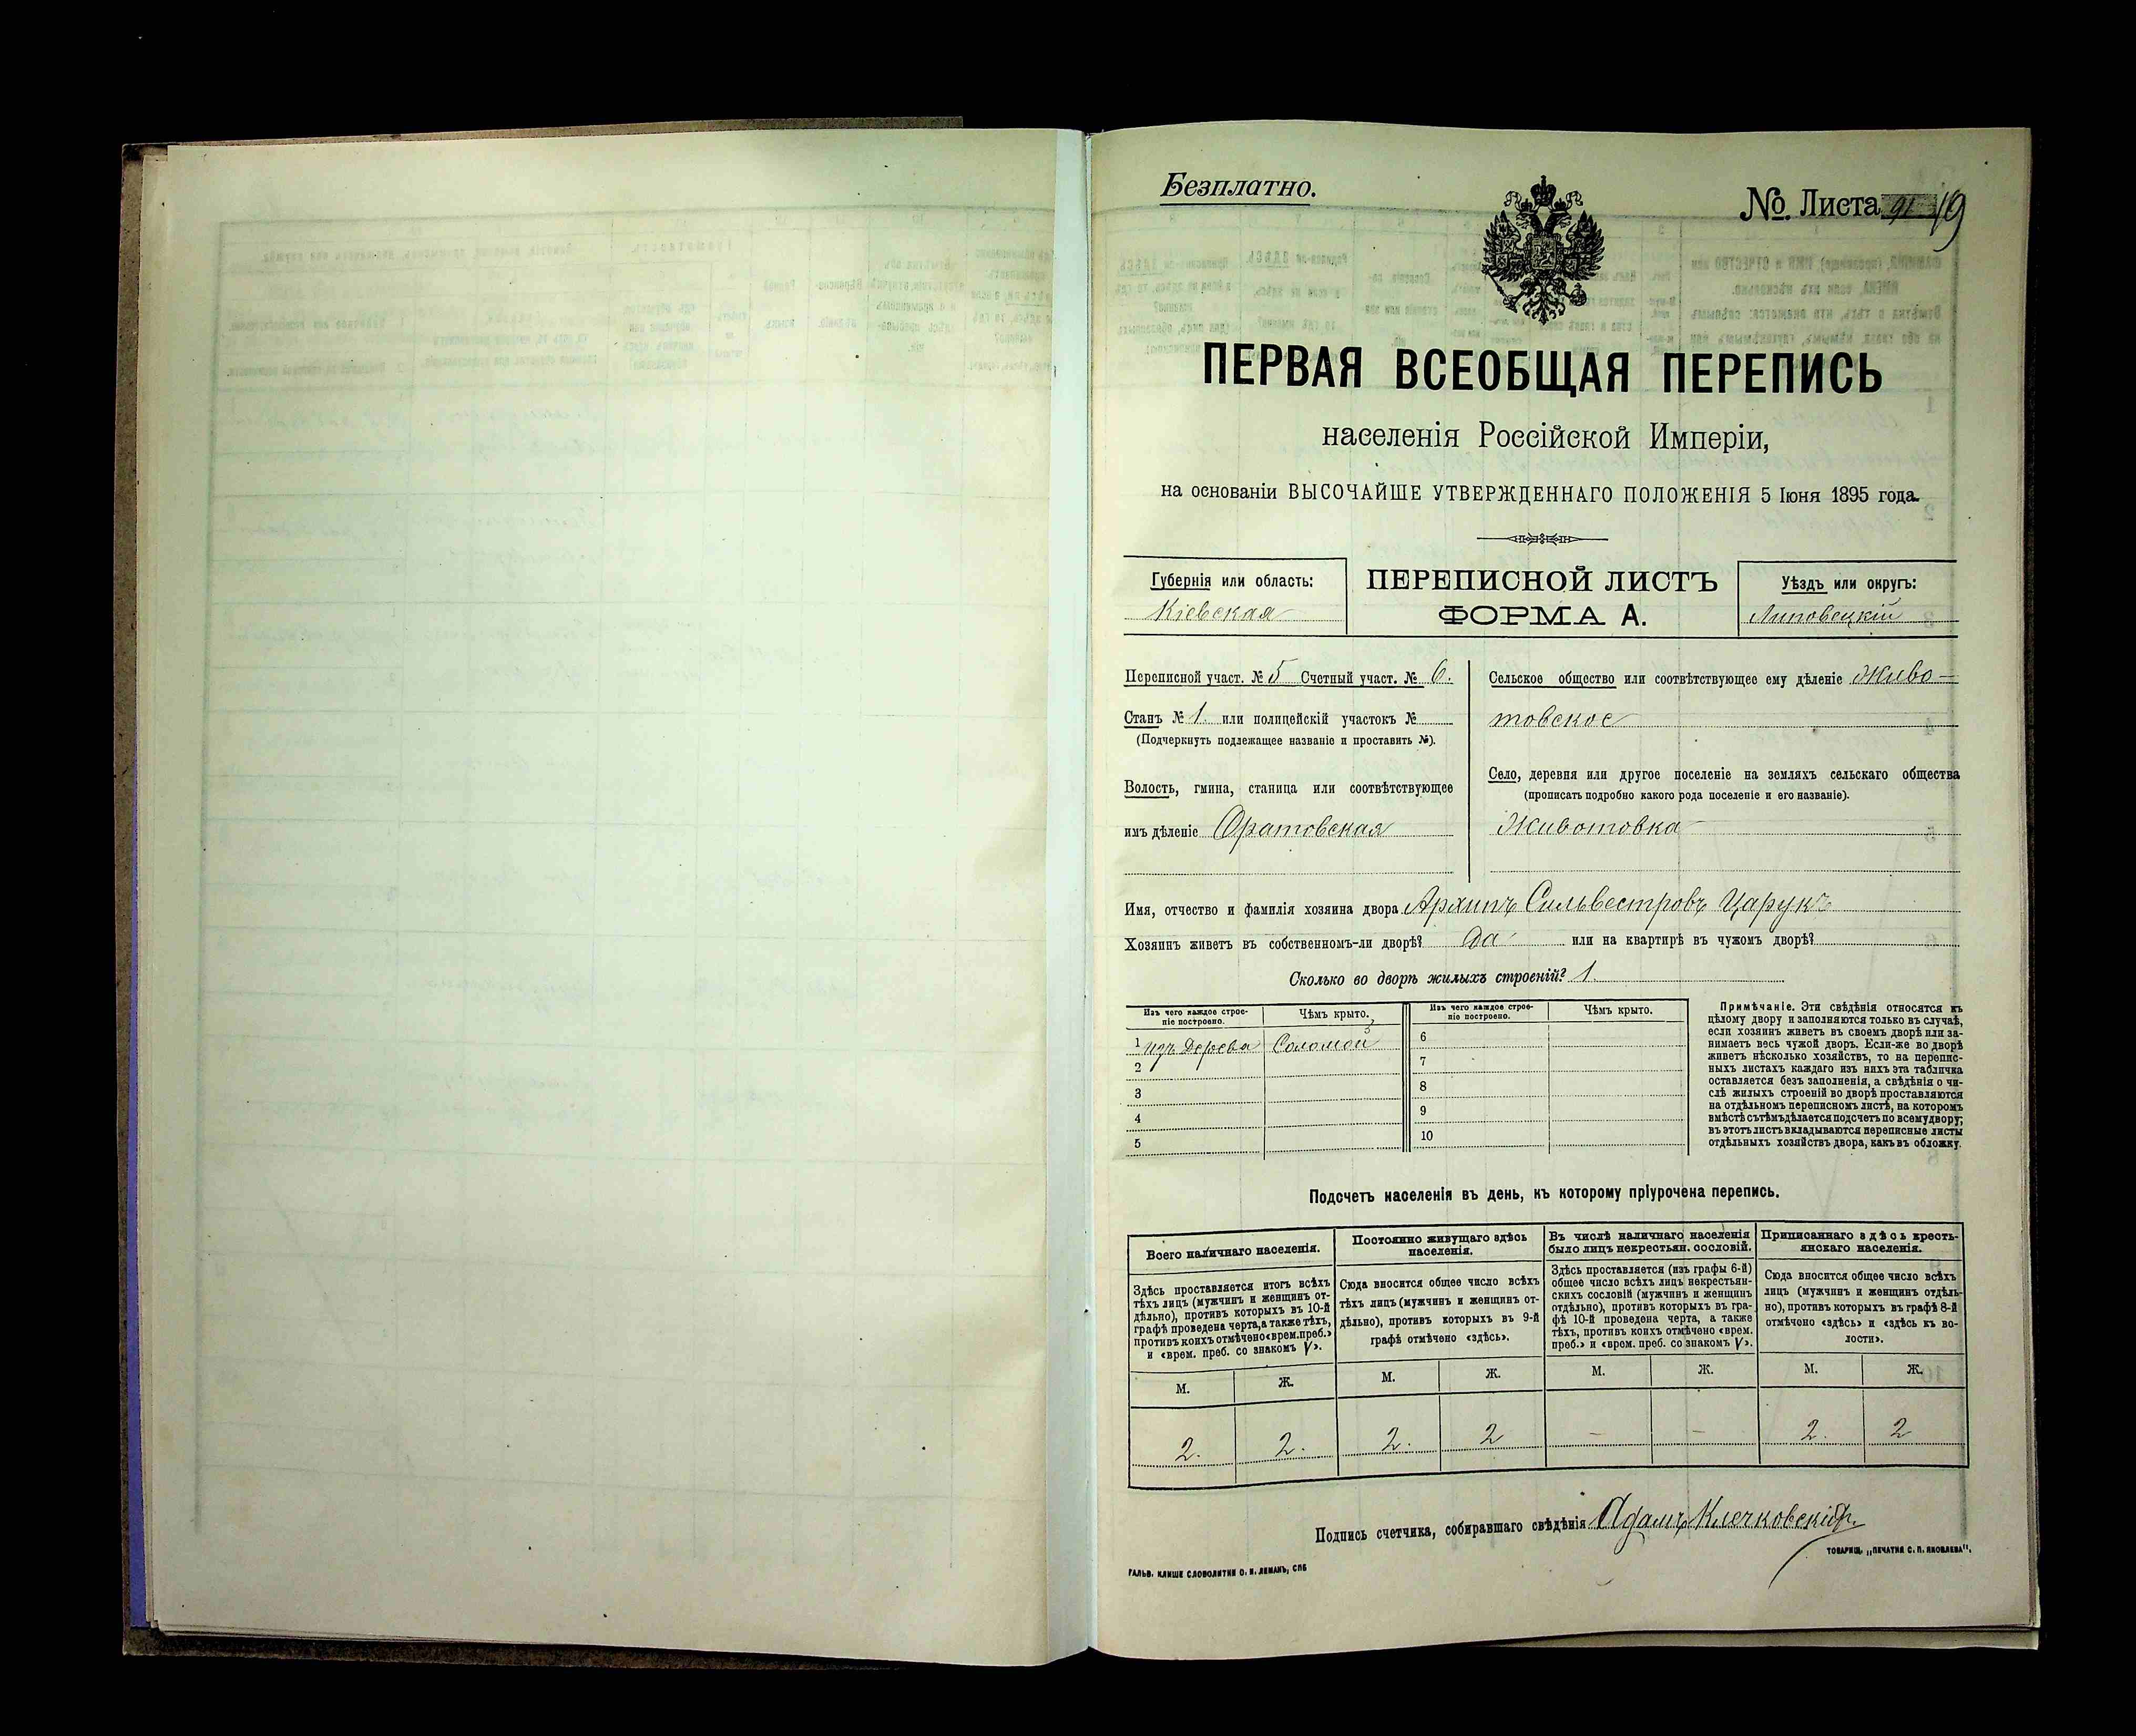 Безплатно.
№ Листа 19
ПЕРВАЯ ВСЕОБЩАЯ ПЕРЕПИСЬ
населенія Россійской Имперіи,
на основаніи ВЫСОЧАЙШЕ УТВЕРЖДЕННАГО ПОЛОЖЕНІЯ 5 Іюня 1895 года.
Губернія или область:
Кіевская
ПЕРЕПИСНОЙ ЛИСТЪ
ФОРМА А.
Уѣздъ или округъ:
Липовецкій
Переписной участ. № 5 Счетный участ. № 6.
Станъ № 1. или полицейскій участокъ №
(Подчеркнуть подлежащее названіе и проставить №).
Волость, гмина, станица или соотвѣтствующее
имъ дѣленіе Оратовская
Сельское общество или соотвѣтствующее ему дѣленіе Живо-
товское
Село, деревня или другое поселеніе на земляхъ сельскаго общества
(прописать подробно какого рода поселеніе и его названіе).
Животовка
Имя, отчество и фамилія хозяина двора Архипъ Сильвестровъ Царукъ
Хозяинъ живетъ въ собственномъ-ли дворѣ? Да или на квартирѣ въ чужомъ дворѣ?
Сколько во дворѣ жилыхъ строеній? 1.
Изъ чего каждое строе-
ніе построено.
Чѣмъ крыто.
1 изъ Дерева Соломой
2
3
4
5
Изъ чего каждое строе-
ніе построено.
Чѣмъ крыто.
6
7
8
9
10
Примѣчаніе. Эти свѣдѣнія относятся къ
цѣлому двору и заполняются только въ случаѣ,
если хозяинъ живетъ въ своемъ дворѣ или за-
нимаетъ весь чужой дворъ. Если-же во дворѣ
живетъ нѣсколько хозяйствъ, то на перепис-
ныхъ листахъ каждаго изъ нихъ эта табличка
оставляется безъ заполненія, а свѣдѣнія о чи-
слѣ жилыхъ строеній во дворѣ проставляются
на отдѣльномъ переписномъ листѣ, на которомъ
вмѣстѣ съ тѣмъ дѣлается подсчетъ по всему двору;
въ этотъ листъ вкладываются переписные листы
отдѣльныхъ хозяйствъ двора, какъ въ обложку.
Подсчетъ населенія въ день, къ которому пріурочена перепись.
Всего наличнаго населенія.
Здѣсь проставляется итогъ всѣхъ
тѣхъ лицъ (мужчинъ и женщинъ от-
дѣльно), противъ которыхъ въ 10-й
графѣ проведена черта, а также тѣхъ,
противъ коихъ отмѣчено «врем. преб.»
и «врем. преб. со знакомъ V».
М. Ж.
2. 2.
Постоянно живущаго здѣсь
населенія.
Сюда вносится общее число всѣхъ
тѣхъ лицъ (мужчинъ и женщинъ от-
дѣльно), противъ которыхъ въ 9-й
графѣ отмѣчено «здѣсь».
М. Ж.
2. 2
Въ числѣ наличнаго населенія
было лицъ некрестьян. сословій.
Здѣсь проставляется (изъ графы 6-й)
общее число всѣхъ лицъ некрестьян-
скихъ сословій (мужчинъ и женщинъ
отдѣльно), противъ которыхъ въ гра-
фѣ 10-й проведена черта, а также
тѣхъ, противъ коихъ отмѣчено «врем.
преб.» и «врем. преб. со знакомъ V».
М. Ж.
– –
Приписаннаго здѣсь кресть-
янскаго населенія.
Сюда вносится общее число всѣхъ
лицъ (мужчинъ и женщинъ отдѣль-
но), противъ которыхъ въ графѣ 8-й
отмѣчено «здѣсь» и «здѣсь въ во-
лости».
М. Ж.
2. 2
Подпись счетчика, собиравшаго свѣдѣнія Адамъ Клечковскій
ГАЛЬВ. КЛИШЕ СЛОВОЛИТНИ О. И. ЛЕМАНЪ, СПБ
ТОВАРИЩ. „ПЕЧАТНЯ С. П. ЯКОВЛЕВА".